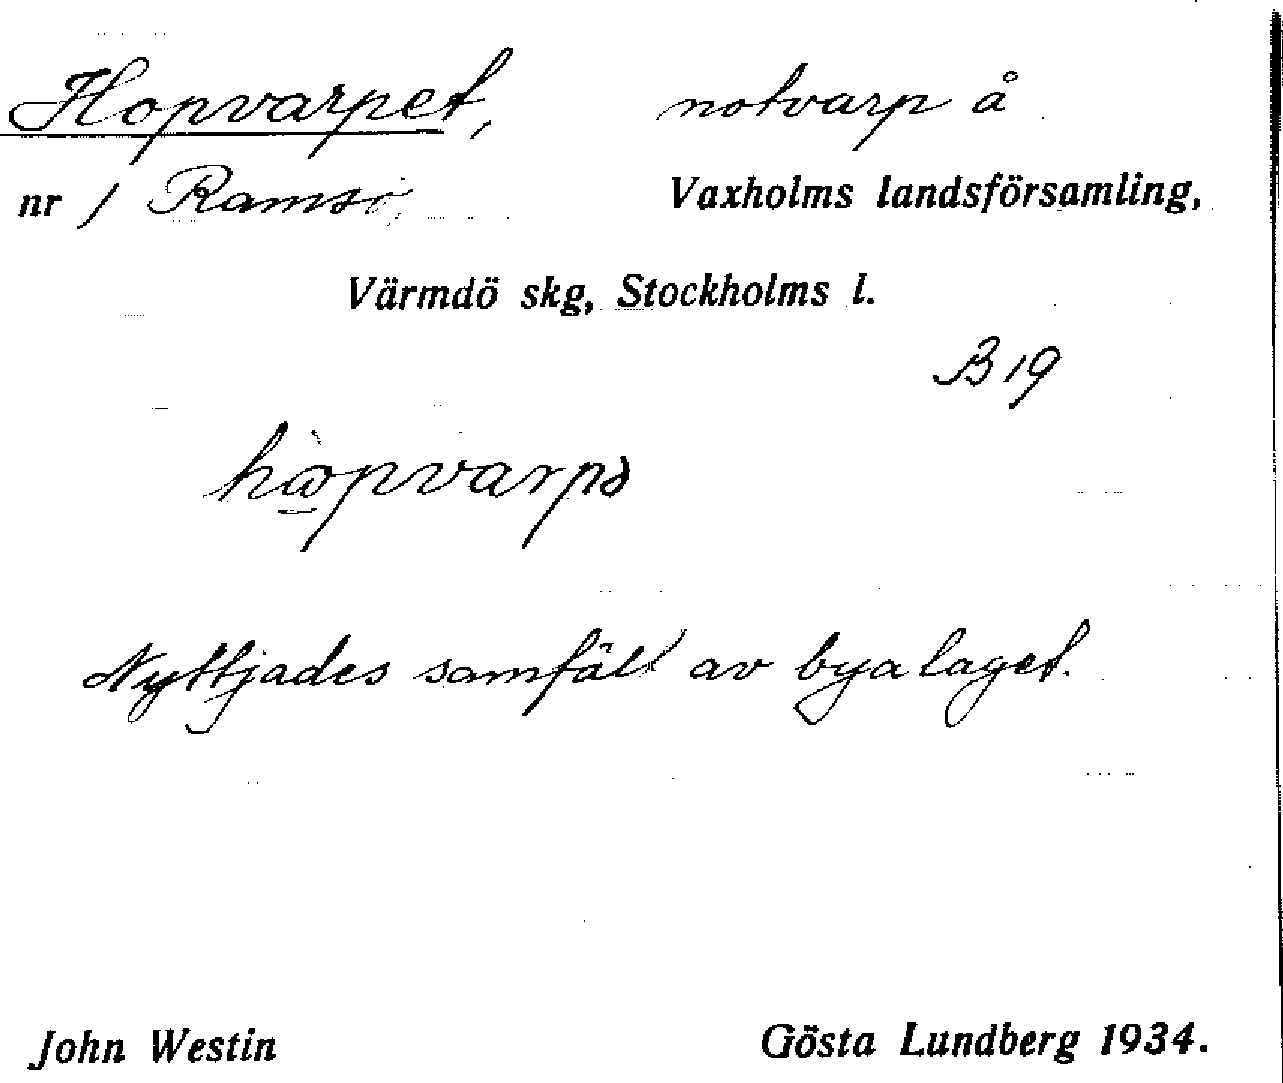 Hopvarpet, notvarp å
nr 1 Ramsö, Vaxholms landsförsamling,
Värmdö skg, Stockholms l.
B 19
Nyttjades samfält av byalaget.
John Westin Gösta Lundberg 1934.